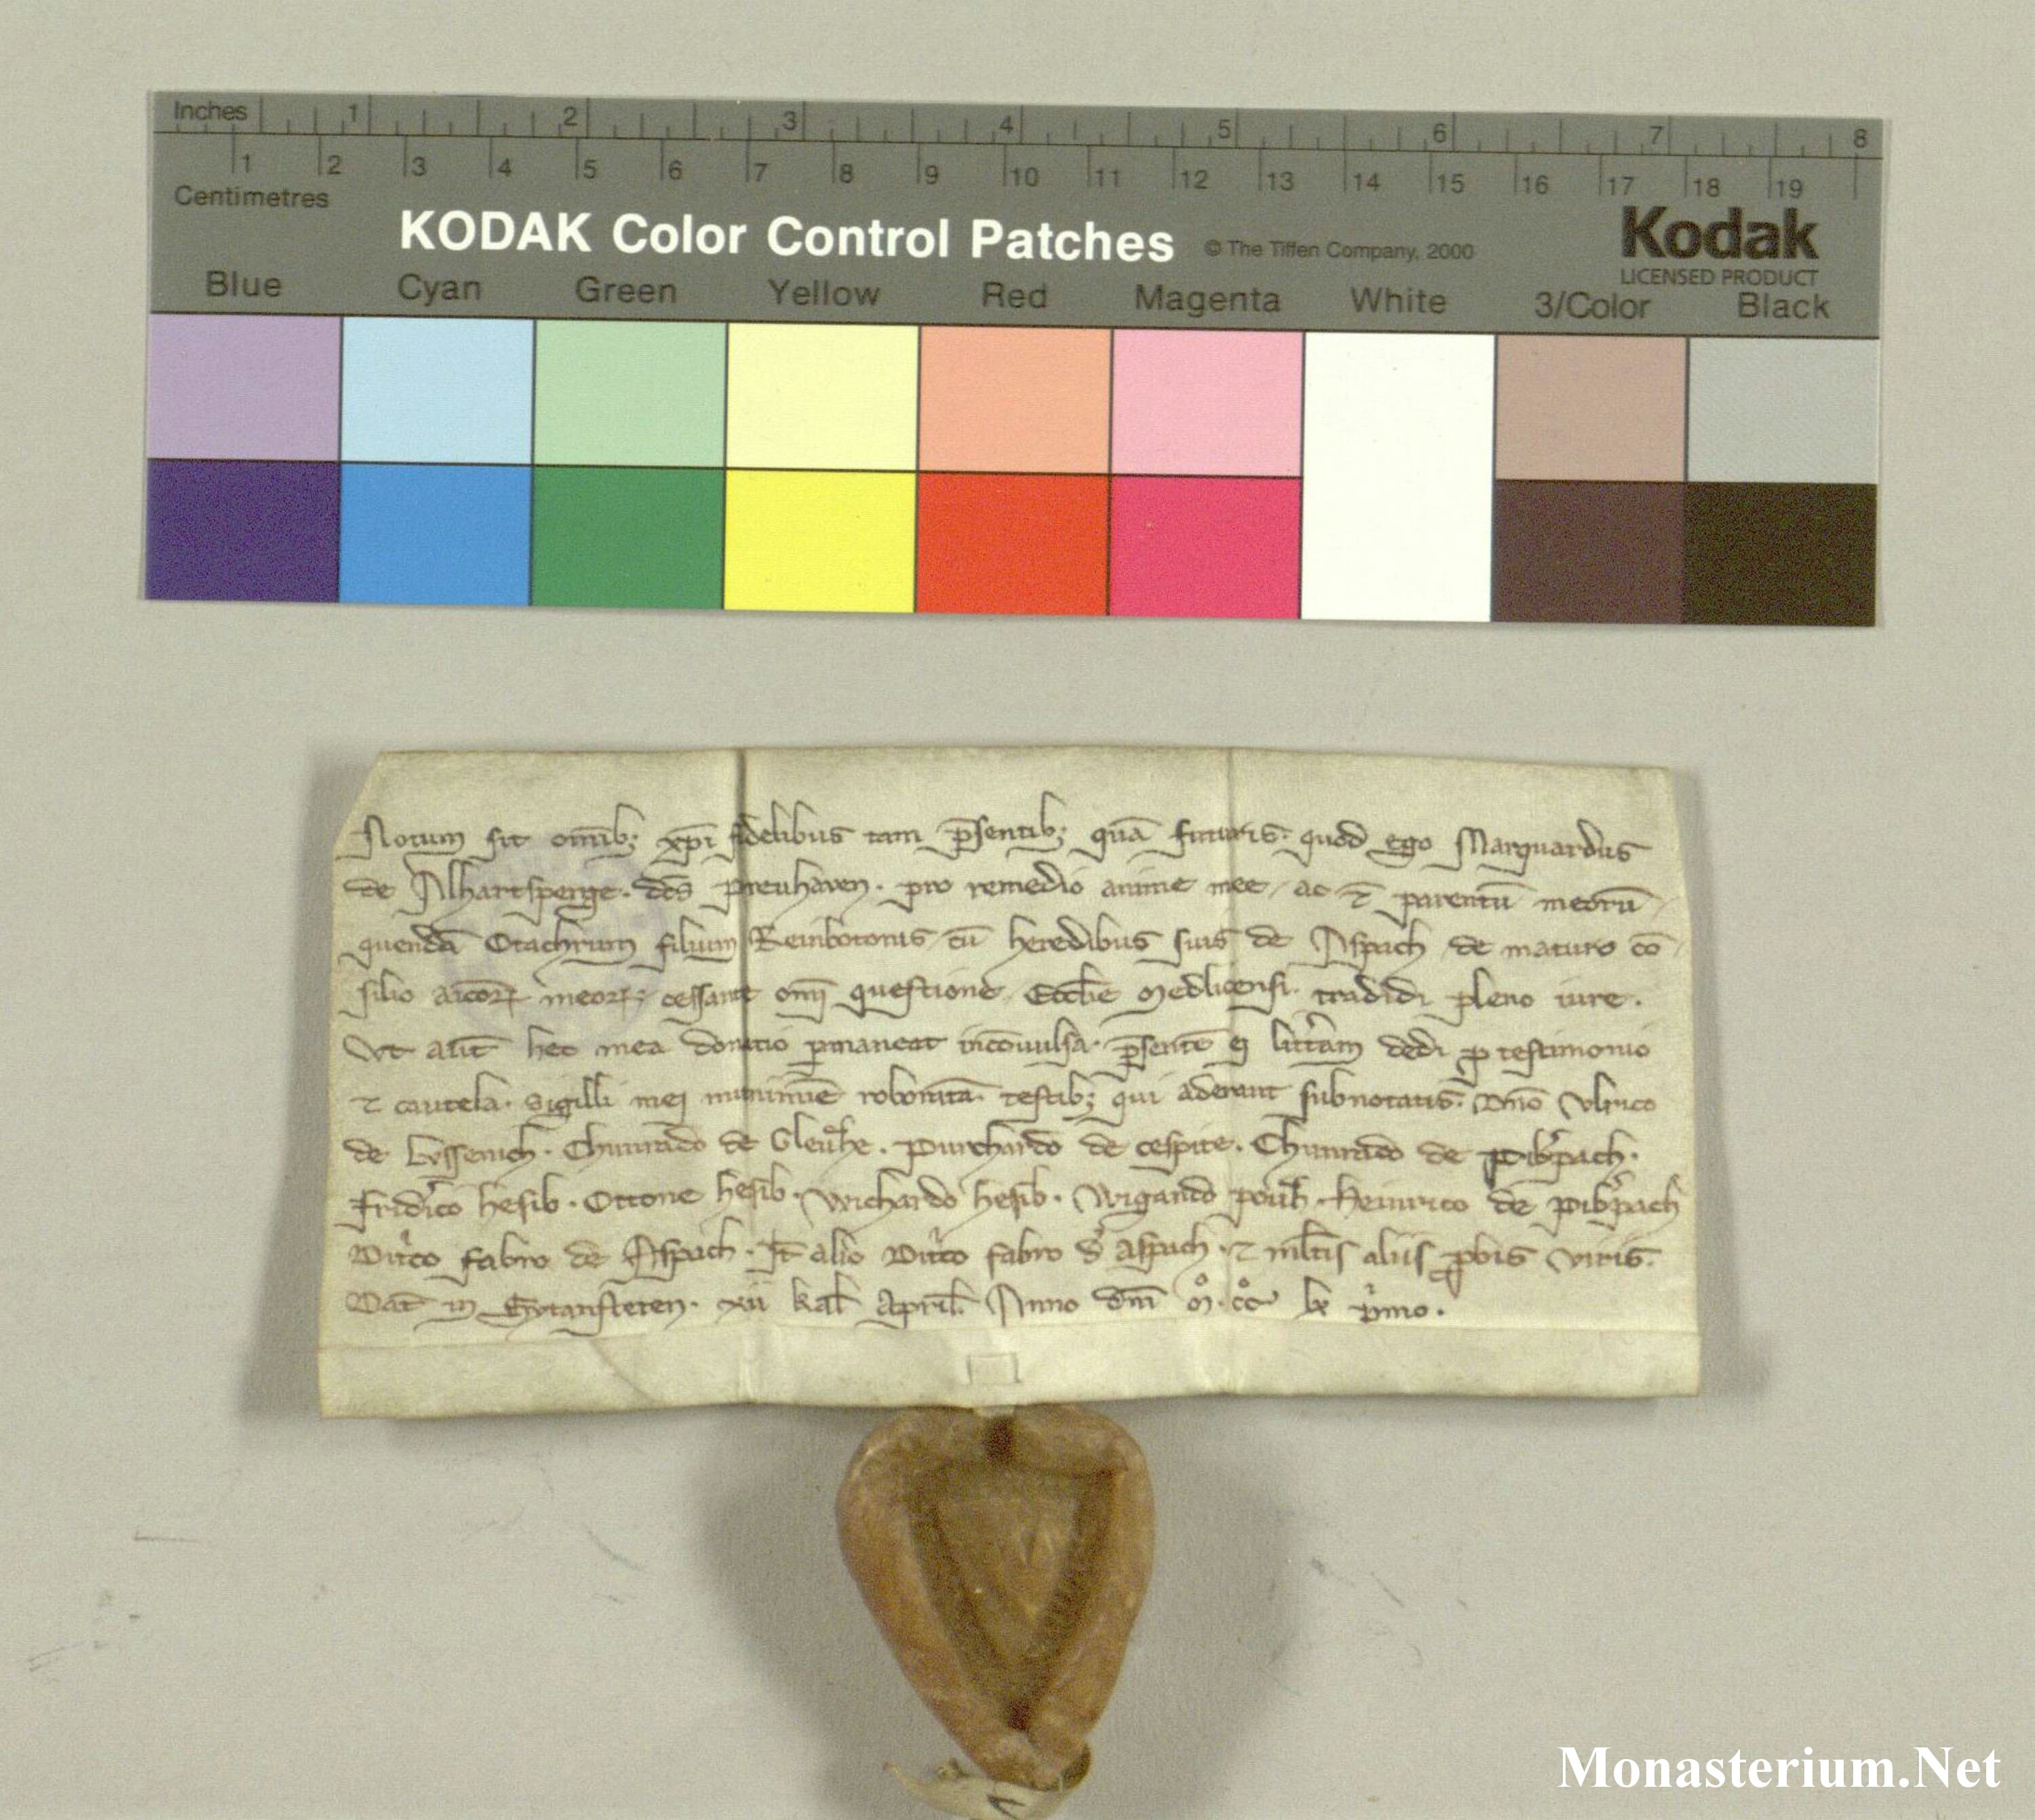 Inches 1 2 3 4 5 6 7 8
1 2 3 4 5 6 7 8 9 10 11 12 13 14 15 16 17 18 19
Centimetres
KODAK Color Control Patches © The Tiffen Company, 2000 Kodak
LICENSED PRODUCT
Blue Cyan Green Yellow Red Magenta White 3/Color Black
Notum sit om̄ib; xp̄i fidelibus tam p̄sentib; quā futuris. quod ego Marquardus
de Alhartsperge. dc̄s preuhaven. pro remedio anime mee, ac ⁊ parentū meorū,
quendā Otachrum filium Reinbotonis, cū heredibus suis de Aspach, de maturo cō-
silio aīcoꝝ meoꝝ; cessante om̄i questione. Eccl̄ie Medlicensi. tradidi pleno iure.
Vt aūt hec mea donatio ꝑmaneat inconuulsa. p̄sentē ei litt̄am dedi ꝓ testimonio
⁊ cautela. sigilli mei munimīe roboratā. testib; qui aderant subnotatis. Dn̄o Vlrico
de Chunrado de . Purchardo de cespite. Chunrado de Pib̓pach.
Frid̓ico hesib. Ottone hesib. Wichardo hesib. Wigando Heinrico de Pib̓pach
fabro de Aspach. It̄ alio fabro d̓ Aspach. ⁊ ml̄tis aliis ꝓbis viris.
Dat̄ in xii kal̄ April̄. Anno dn̄i M̊. cc̊ lx p̓mo.
Monasterium.Net